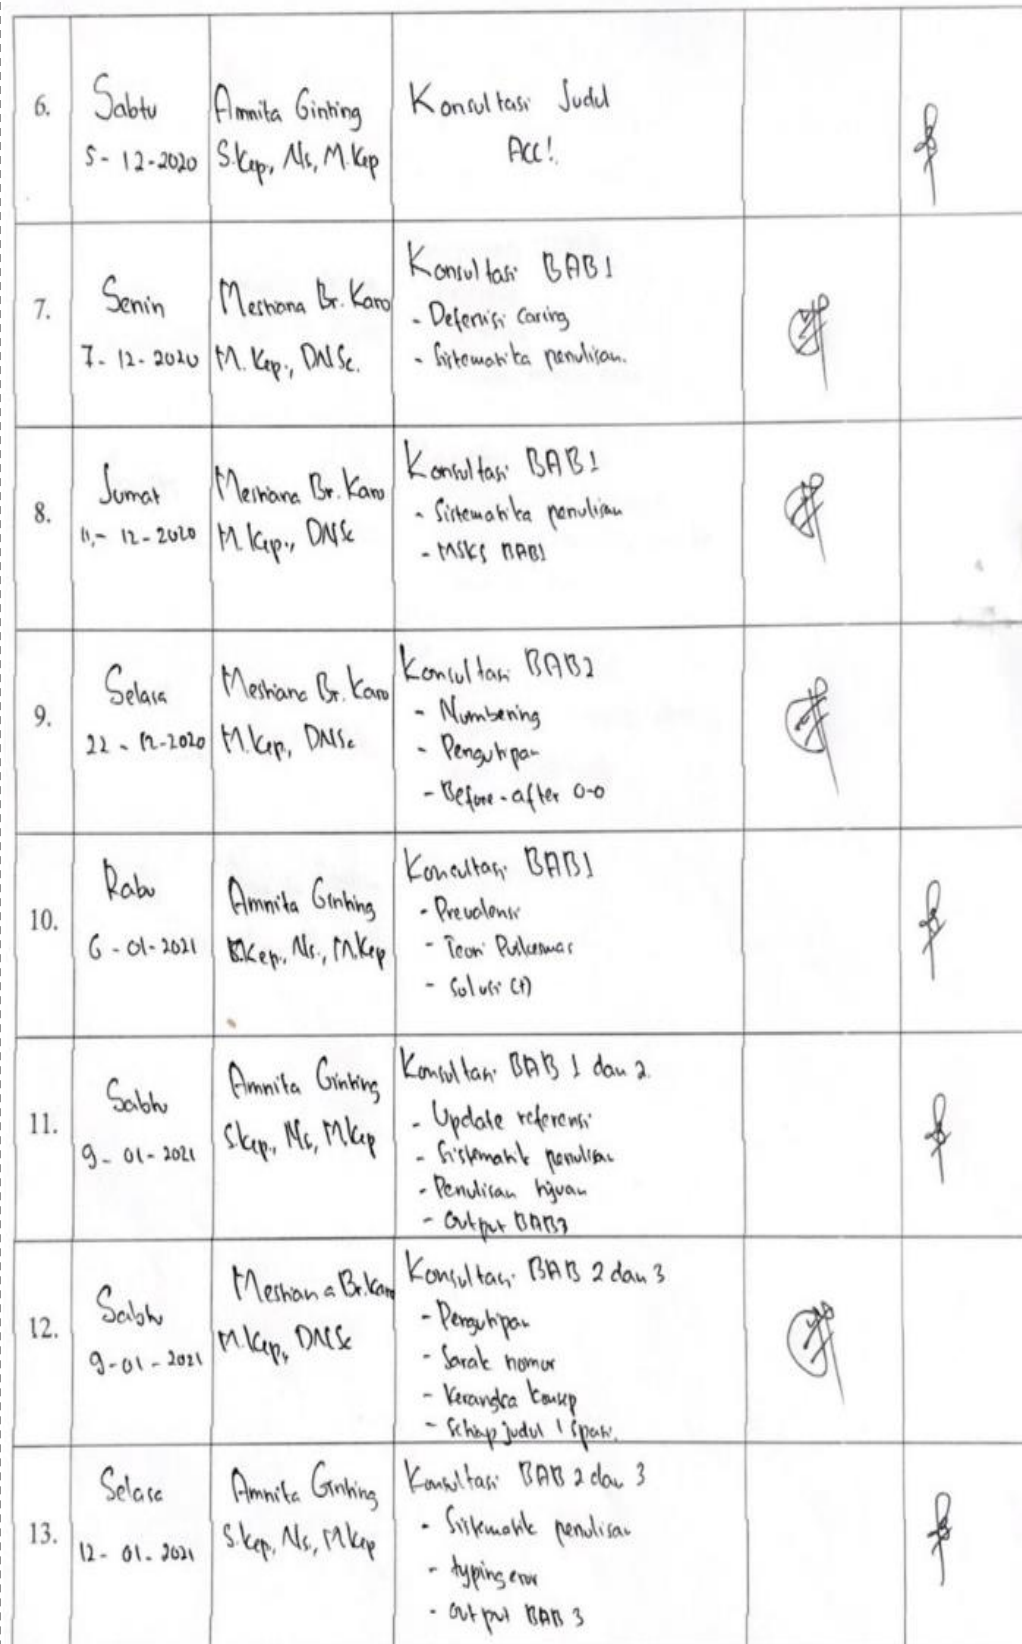 6.
Sabtu
5 - 12 - 2020
Amnita Ginting
S.Kep., Ns, M.Kep
Konsultasi Judul
Acc!.
7.
Senin
7 - 12 - 2020
Mestiana Br. Karo
M. Kep., DNSc.
Konsultasi BAB 1
- Defenisi Caring
- Sistematika penulisan.
8.
Jumat
11, - 12 - 2020
Mestiana Br. Karo
M. Kep., DNSc
Konsultasi BAB 1
- Sistematika penulisan
- MSKS BAB1
9.
Selasa
22 - 12 - 2020
Mestiana Br. Karo
M.Kep, DNSc
Konsultasi BAB2
- Numbering
- Pengutipan
- Before - after 0-0
10.
Rabu
6 - 01 - 2021
Amnita Ginting
S.Kep., Ns., M.Kep
Konsultasi BAB1
- Prevalensi
- Teori Puskesmas
- Solusi (+)
11.
Sabtu
9 - 01 - 2021
Amnita Ginting
S.Kep., Ns, M.Kep
Konsultasi BAB 1 dan 2.
- Update referensi
- Sistematik penulisan
- Penulisan tujuan
- Output BAB3
12.
Sabtu
9 - 01 - 2021
Mestiana Br. Karo
M.Kep, DNSc
Konsultasi BAB 2 dan 3
- Pengutipan
- Jarak nomor
- Kerangka konsep
- Setiap judul 1 spasi.
13.
Selasa
12 - 01 - 2021
Amnita Ginting
S.Kep, Ns, M.Kep
Konsultasi BAB 2 dan 3
- Sistematik penulisan
- typing error
- Output BAB 3